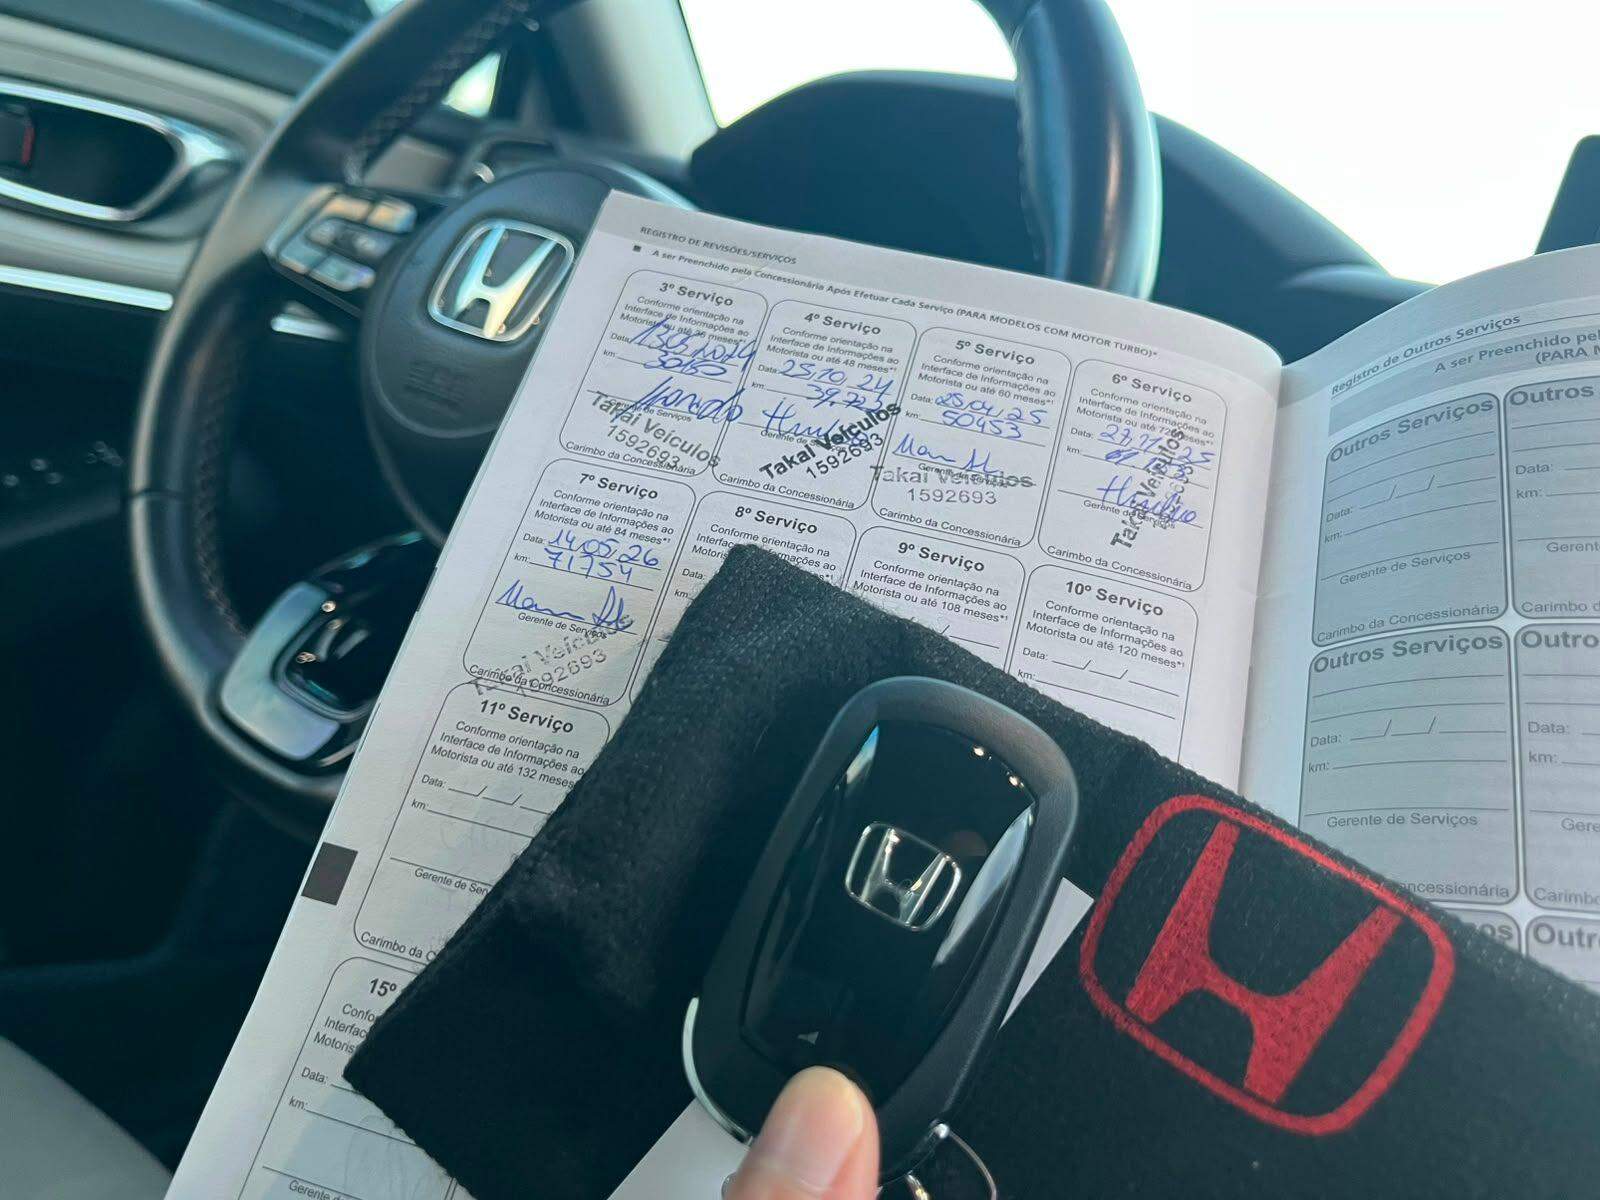 REGISTRO DE REVISÕES/SERVIÇOS
A ser Preenchido pela Concessionária Após Efetuar Cada Serviço (PARA MODELOS COM MOTOR TURBO)*
3º Serviço
Conforme orientação na
Interface de Informações ao
Motorista ou até 36 meses*¹
Data:
km:
Gerente de Serviços
Takai Veículos
1592693
Carimbo da Concessionária
4º Serviço
Conforme orientação na
Interface de Informações ao
Motorista ou até 48 meses*¹
Data: 25.10.24
km: 39.723
Gerente de Serviços
Takai Veículos
1592693
Carimbo da Concessionária
5º Serviço
Conforme orientação na
Interface de Informações ao
Motorista ou até 60 meses*¹
Data: 25.04.25
km: 50453
Gerente de Serviços
Takai Veículos
1592693
Carimbo da Concessionária
6º Serviço
Conforme orientação na
Interface de Informações ao
Motorista ou até 72 meses*¹
Data: 27.11.25
km:
Gerente de Serviços
Takai Veículos
Carimbo da Concessionária
7º Serviço
Conforme orientação na
Interface de Informações ao
Motorista ou até 84 meses*¹
Data: 14.05.26
km: 71754
Gerente de Serviços
Takai Veículos
1592693
Carimbo da Concessionária
8º Serviço
Conforme orientação na
Data:
km:
9º Serviço
Conforme orientação na
Interface de Informações ao
Motorista ou até 108 meses*¹
10º Serviço
Conforme orientação na
Interface de Informações ao
Motorista ou até 120 meses*¹
Data: __/__/__
km:
11º Serviço
Conforme orientação na
Interface de Informações ao
Motorista ou até 132 meses*¹
Data: __/__/__
km:
Gerente de Ser
Carimbo da C
15º
Confo
Interfac
Motoris
Data:
km:
Gerente
Registro de Outros Serviços
A ser Preenchido pe
(PARA M
Outros Serviços
Data: __/__/__
km:
Gerente de Serviços
Carimbo da Concessionária
Outros
Data:
km:
Gerent
Carimbo d
Outros Serviços
Data: __/__/__
km:
Gerente de Serviços
ncessionária
Outro
Data:
km:
Gere
Carimb
os
Outr